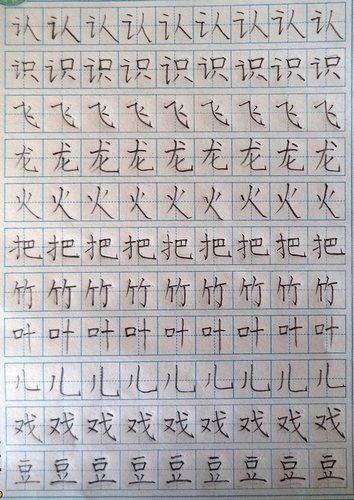 认认认认认认认认认
识识识识识识识识识
飞飞飞飞飞飞飞飞飞
龙龙龙龙龙龙龙龙龙
火火火火火火火火火
把把把把把把把把把
竹竹竹竹竹竹竹竹竹
叶叶叶叶叶叶叶叶叶
儿儿儿儿儿儿儿儿儿
戏戏戏戏戏戏戏戏戏
豆豆豆豆豆豆豆豆豆